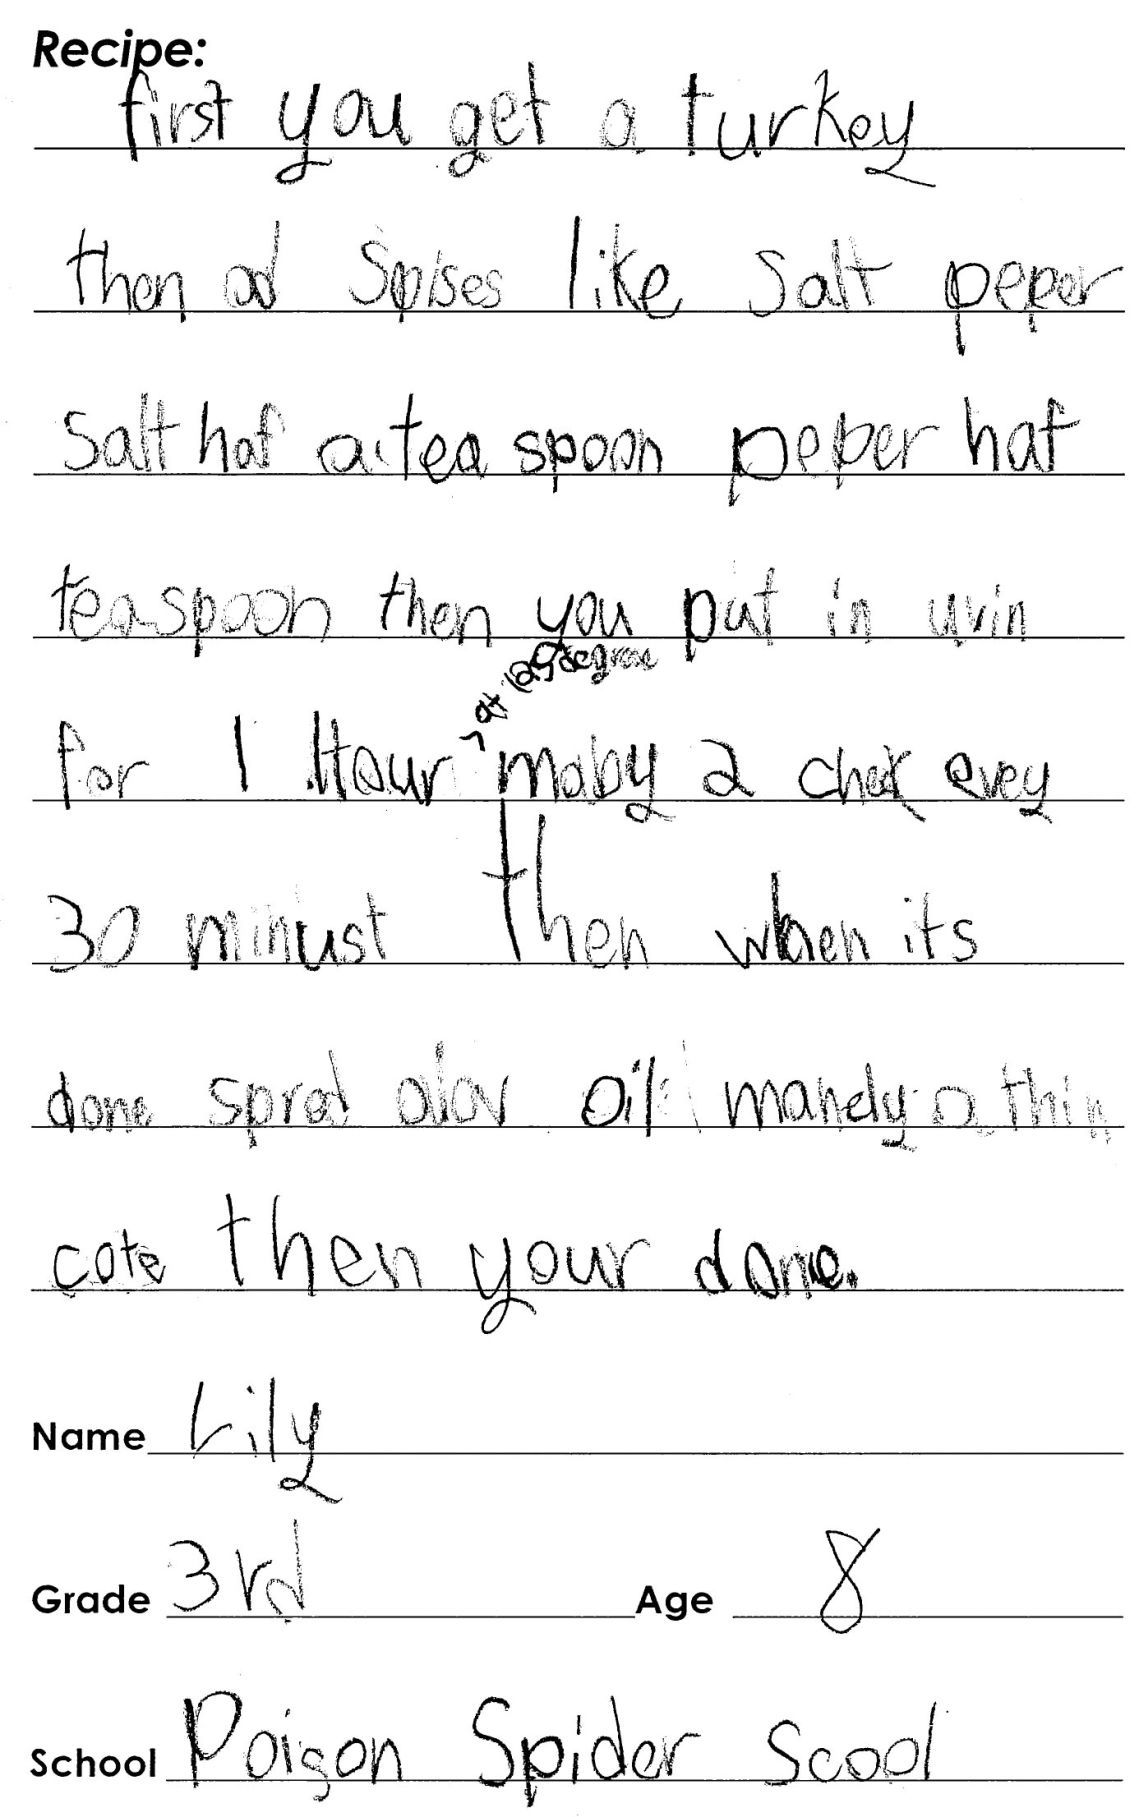 Recipe:
first you get a turkey
then ad Spises like Salt peper
Salt haf a tea spoon peper haf
teaspoon then you put in uvin
^ at 125 degree
for 1 Hour maby 2 chek evey
30 minust then when its
done sprad olav oil manely a thin
cote then your done.
Name Lily
Grade 3rd Age 8
School Poison Spider Scool